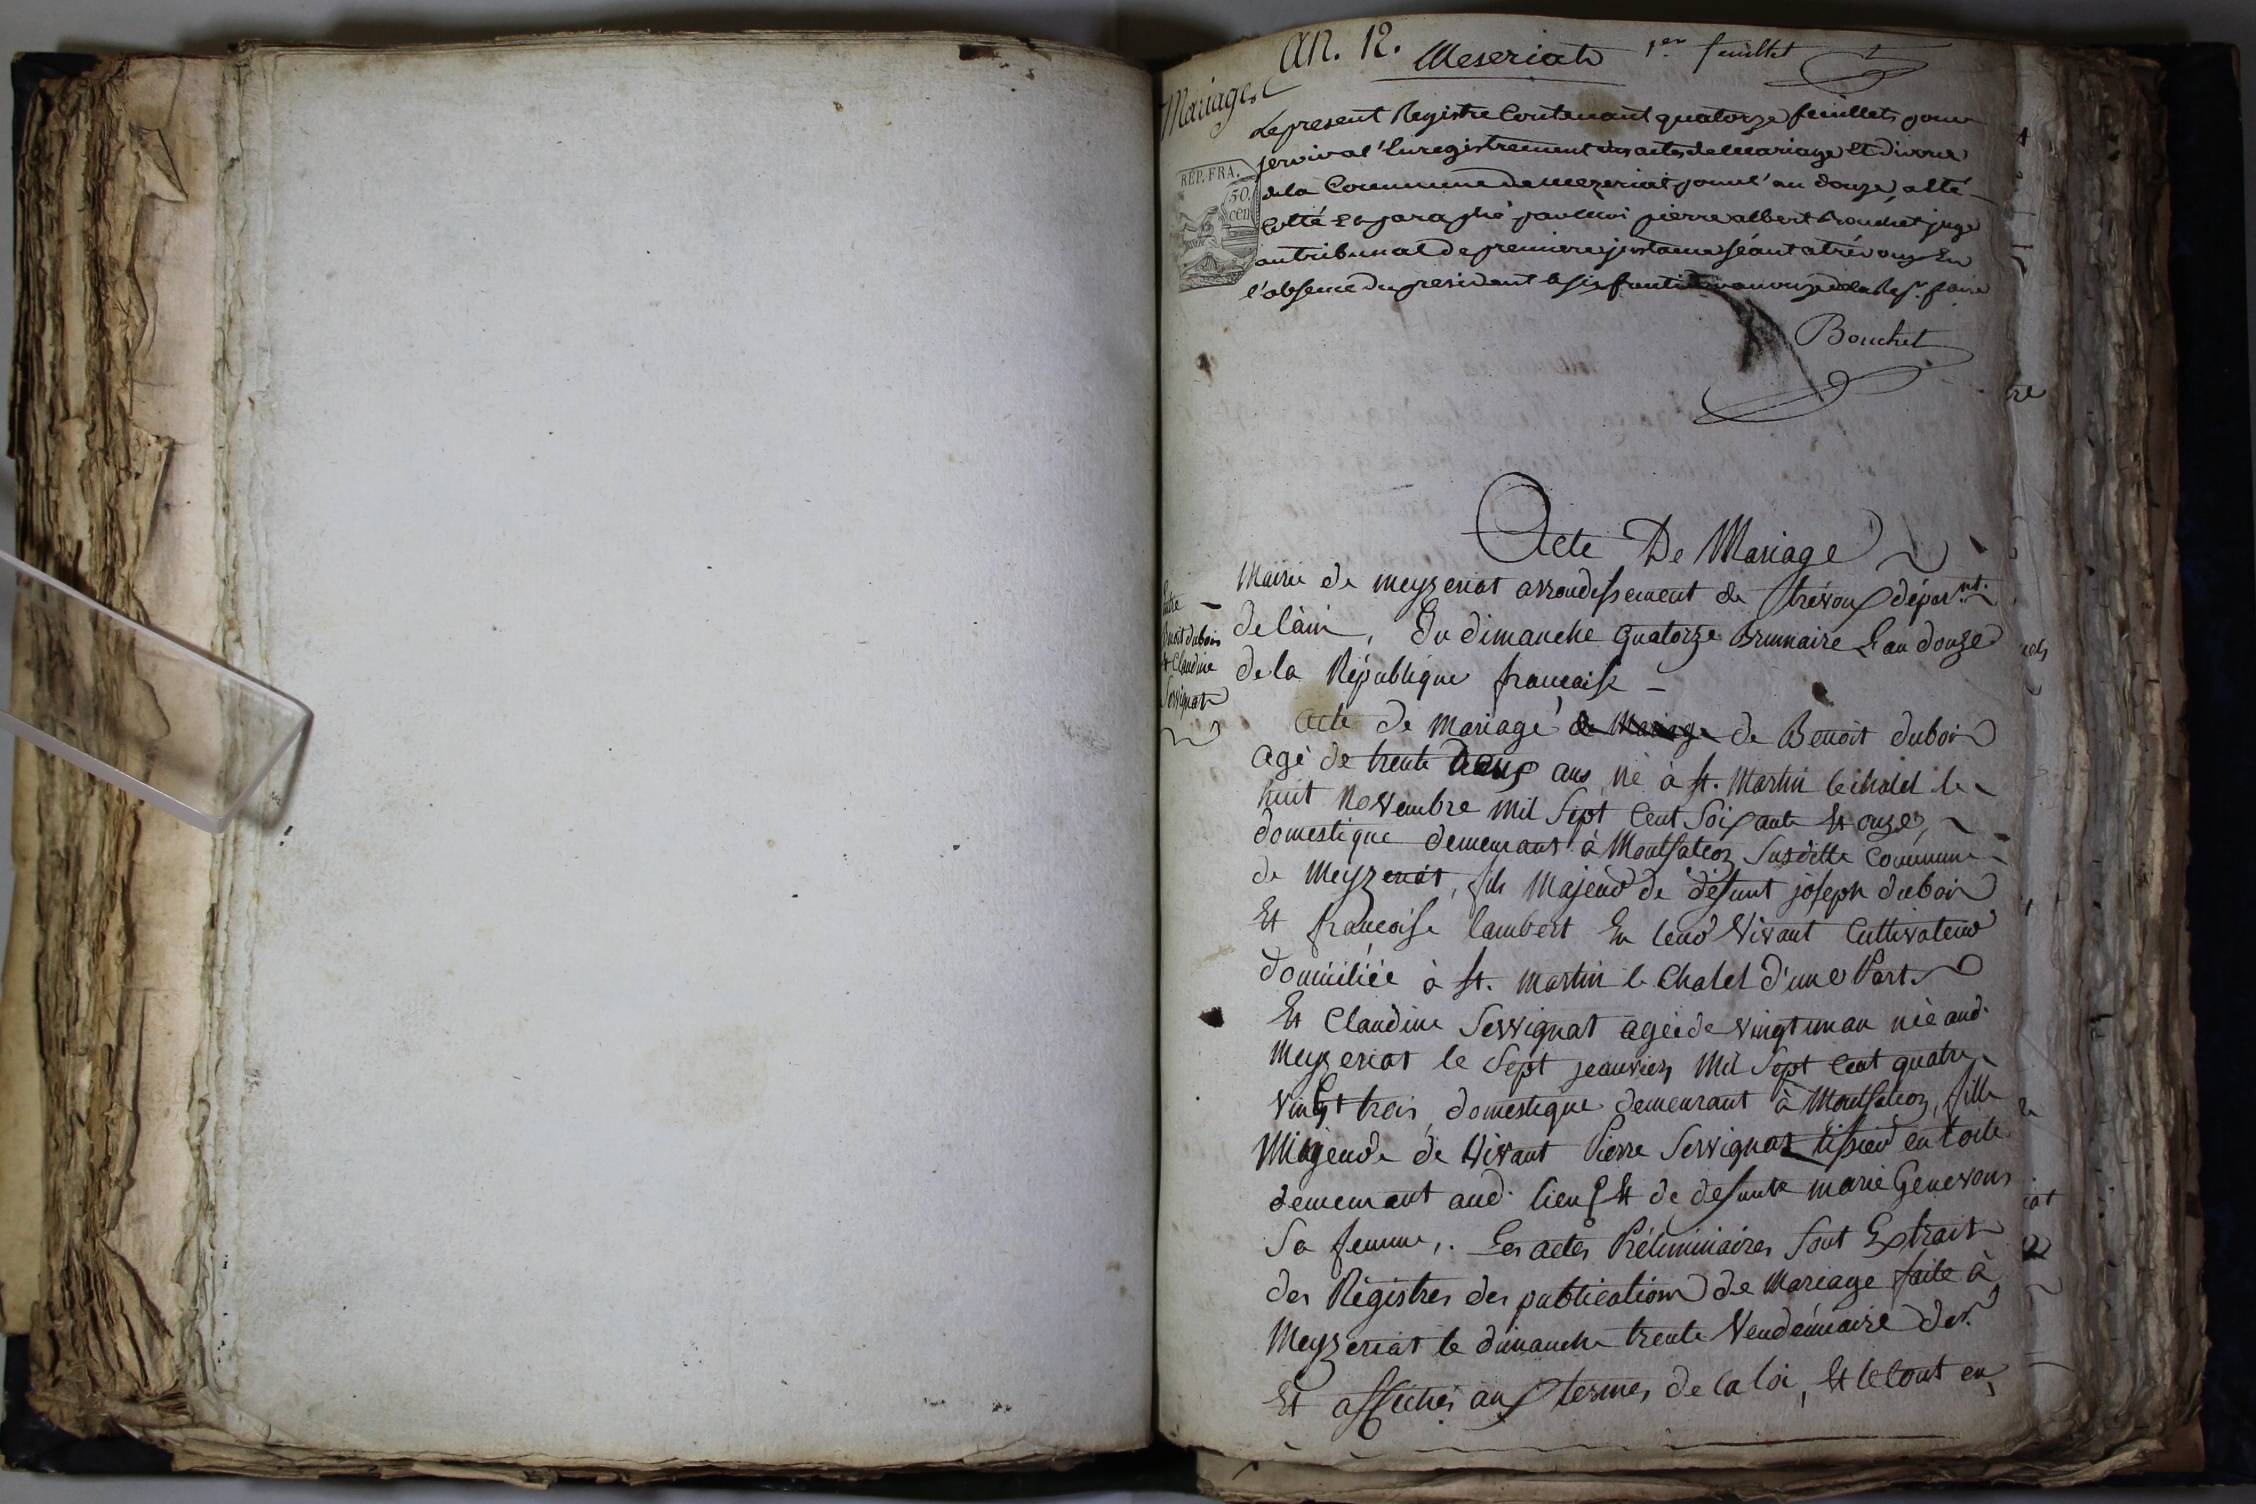 an. 12. Meseriat 1er feuillet
Mariages
Le present Registre Contenant quatorze feuillets pour
servir a l'Enregistrement des actes de Mariage Et divorce
de la Commune de Mezeriat pour l'an douze, a été
Cotté Et paraphé par Moi pierre albert Bouchet juge
au tribunal de premiere instance séant a trévoux En
l'absence du president le six fructidor an onze de la Rep. faise
REP. FRA.
50.
cen
Bouchet
Acte De Mariage
Entre
Benoit dubois
Et Claudine
Servignat
Mairie de meyzeriat arrondissement de trévoux départnt.
de l'ain, Du dimanche quatorze Brumaire L'an douze
de la République francaise
acte de Mariage de Mariage de Benoit dubois
agé de trente deux ans, né à St. Martin le chatel le
huit Novembre mil Sept Cent Soixante Et onze,
domestique demeurant à Montfalcon Susditte Commune
de Meyzeriat, fils Majeur de défunt joseph dubois
Et francoise lambert En leur Vivant Cultivateur
domiciliée à St. martin le Chatel d'une Part
Et Claudine Servignat agée de vingt un an née aud.
Meyzeriat le Sept jeanvier Mil Sept Cent quatre
vingt trois, domestique demeurant à Montfalcon, fille
Majeure de Vivant Pierre Servignat tissier en toile
demeurant aud. lieu Et de defunte marie Genevous
Sa femme,. Les actes Préliminaires Sont Extrait
des Régistres des publications de Mariage faite à
Meyzeriat le dimanche trente Vendémiaire der.
Et affichés aux termes de la loi, Et le tout en